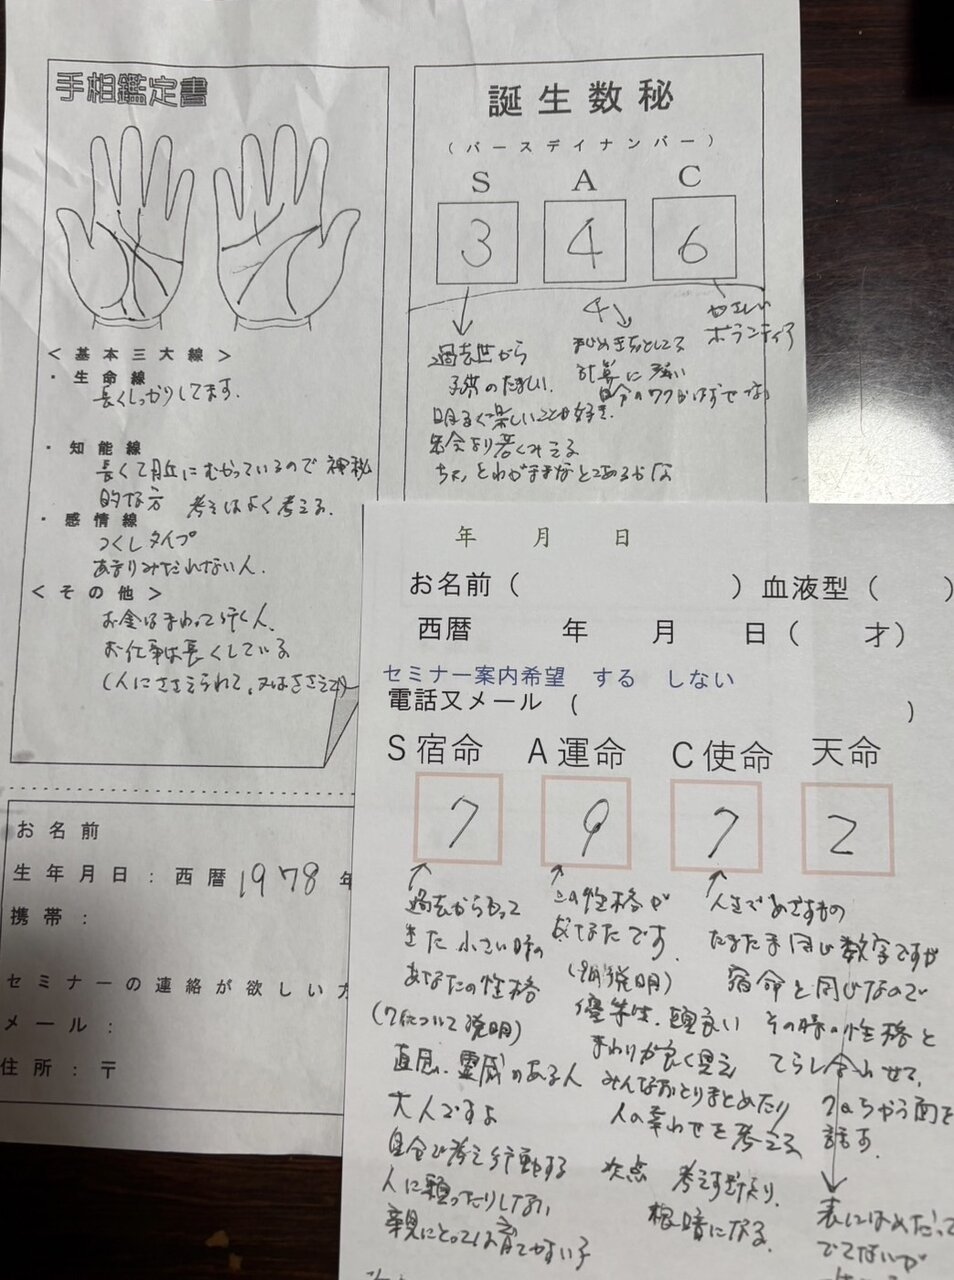 手相鑑定書
<基本三大線>
・生命線
長くしっかりしてます。
・知能線
長くて月丘にむかっているので神秘
的な方 考えはよく考える。
・感情線
つくしタイプ
あまりみだれない人.
<その他>
お金はまわって行く人.
お仕事は長くしている
(人にささえられて、又はささえて)
お名前
生年月日:西暦1978年
携帯:
セミナーの連絡が欲しい方
メール:
住所:〒
誕生数秘
(バースデイナンバー)
S A C
3 4 6
過去世から
子供のたましい.
明るく楽しいことが好き.
年令より若くみえる
ちょっとわがままなところあるかな
4
まじめきちっとしてる
計算に強い
自分のワクがはずせない
やさしい
ボランティア
年 月 日
お名前( )血液型( )
西暦 年 月 日( 才)
セミナー案内希望 する しない
電話又メール ( )
S宿命 A運命 C使命 天命
7 9 7 2
過去からもって
きた小さい時の
あなたの性格
(7について説明)
直感、霊感のある人
大人ですよ
自分で考え行動する
人に頼ったりしない
親にとっては育てやすい子
この性格が
あなたです.
(9の説明)
優等生.頭良い
まわりが良く見え
みんなをとりまとめたり
人の幸わせを考える
欠点 考えすぎたり.
根暗になる.
人生でめざすもの
たまたま同じ数字ですが
宿命と同じなので
その時の性格と
てらし合わせて、
7のちがう面を
話す.
表にはめだって
でてないが